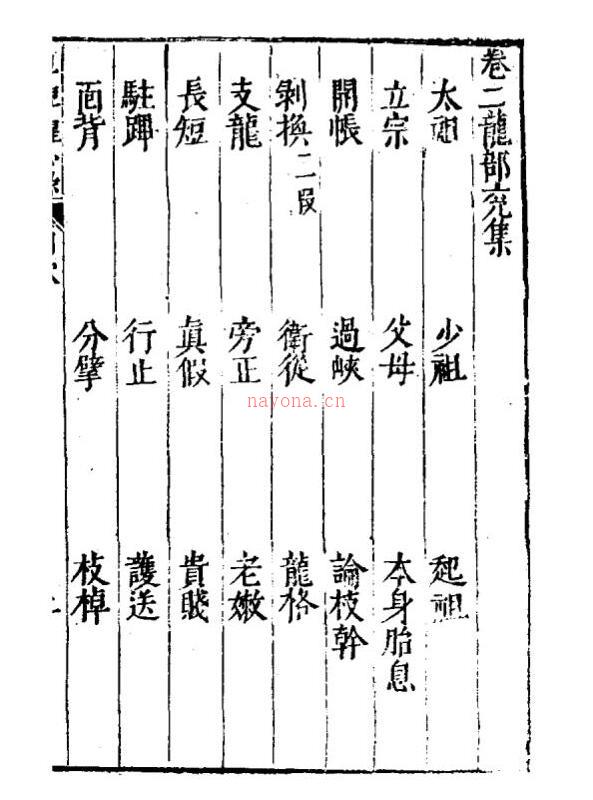 卷二龍部兗集
太祖 少祖 起祖
立宗 父母 本身胎息
開帳 過峽 論枝幹
剝換二段 衛從 龍格
支龍 旁正 老嫩
長短 眞假 貴賤
駐蹕 行止 護送
面背 分擘 枝棹
nayona.cn